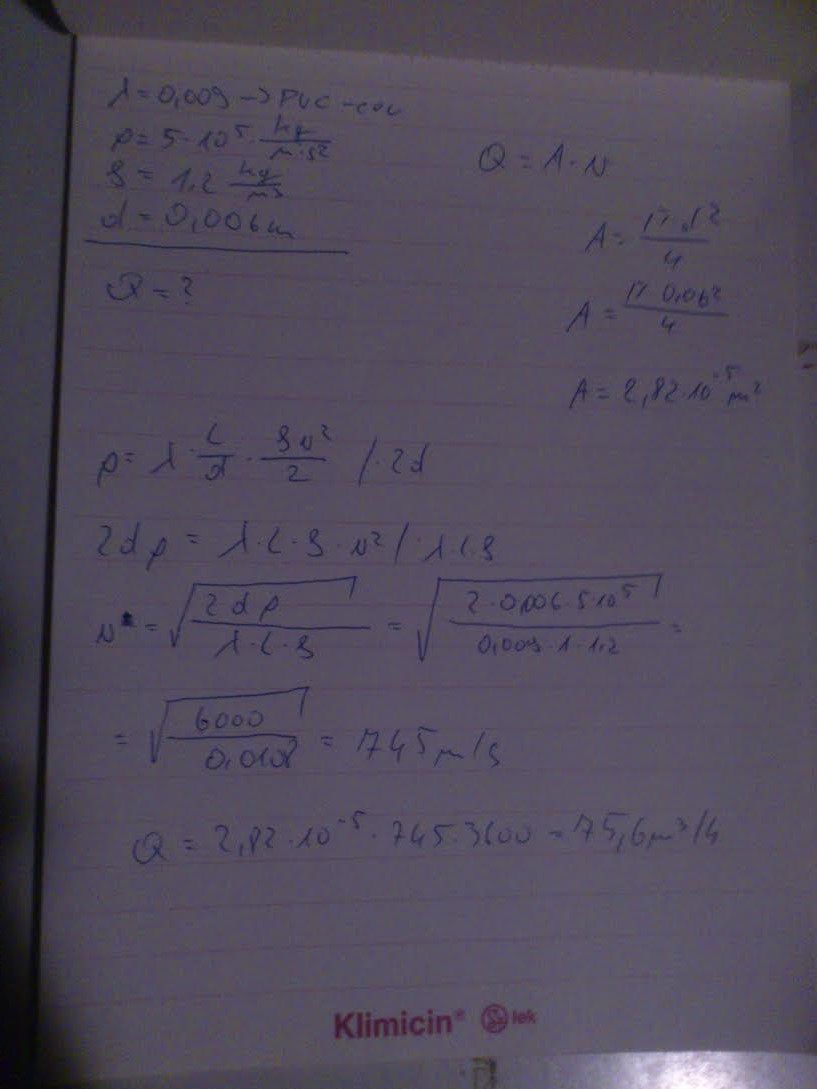 λ = 0,009 → PVC - cev
p = 5 · 10⁵ · kg/m·s²
ρ = 1.2 kg/m³
d = 0,006 m
Q = ?
Q = A · v
A = π · d²/4
A = π 0,06²/4
A = 2,82 · 10⁻⁵ m²
p = λ · L/d · ρv²/2 / · 2d
2dp = λ · L · ρ · v² / λ L ρ
v = √(2dp/λ · L · ρ) = √(2 · 0,006 · 5 · 10⁵/0,009 · 1 · 1,2) =
= √(6000/0,0108) = 745 m/s
Q = 2,82 · 10⁻⁵ · 745 · 3600 = 75,6 m³/h
Klimicin® lek